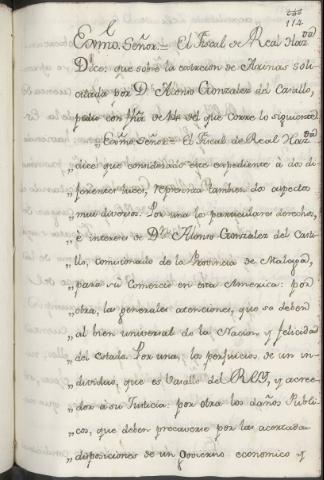 114
Exmo. Señor = El Fiscal de Real Hazda
Dice: que sobre la extrccion de Arinas soli
citada por Dn. Alonso Gonzalez del Castillo,
pedio con fha de 14 del que corre lo siguiente
"Exmo. Señor = El Fiscal de Real Hazda
"dice que considerado este expediente à dos di
"ferentes luces, representa tambien dos aspectos
"muy diversos. Por una los particulares derechos,
"è intereses de Dn. Alonso Gonzalez del Casti
"llo, comisionado de la Provincia de Malaga,
"para su Comercio en esta America: por
"otra, las generales atenciones, que se deben
"al bien universal de la Nacion y felicidad
"del estado. Por una, los perjuicios de un in
"dividuo, que es Vasallo del REY, y acree
"dor à su Justicia: por otra los daños Publi
"cos, que deben precaverse por las acertadas
"disposiciones de un Govierno economico y